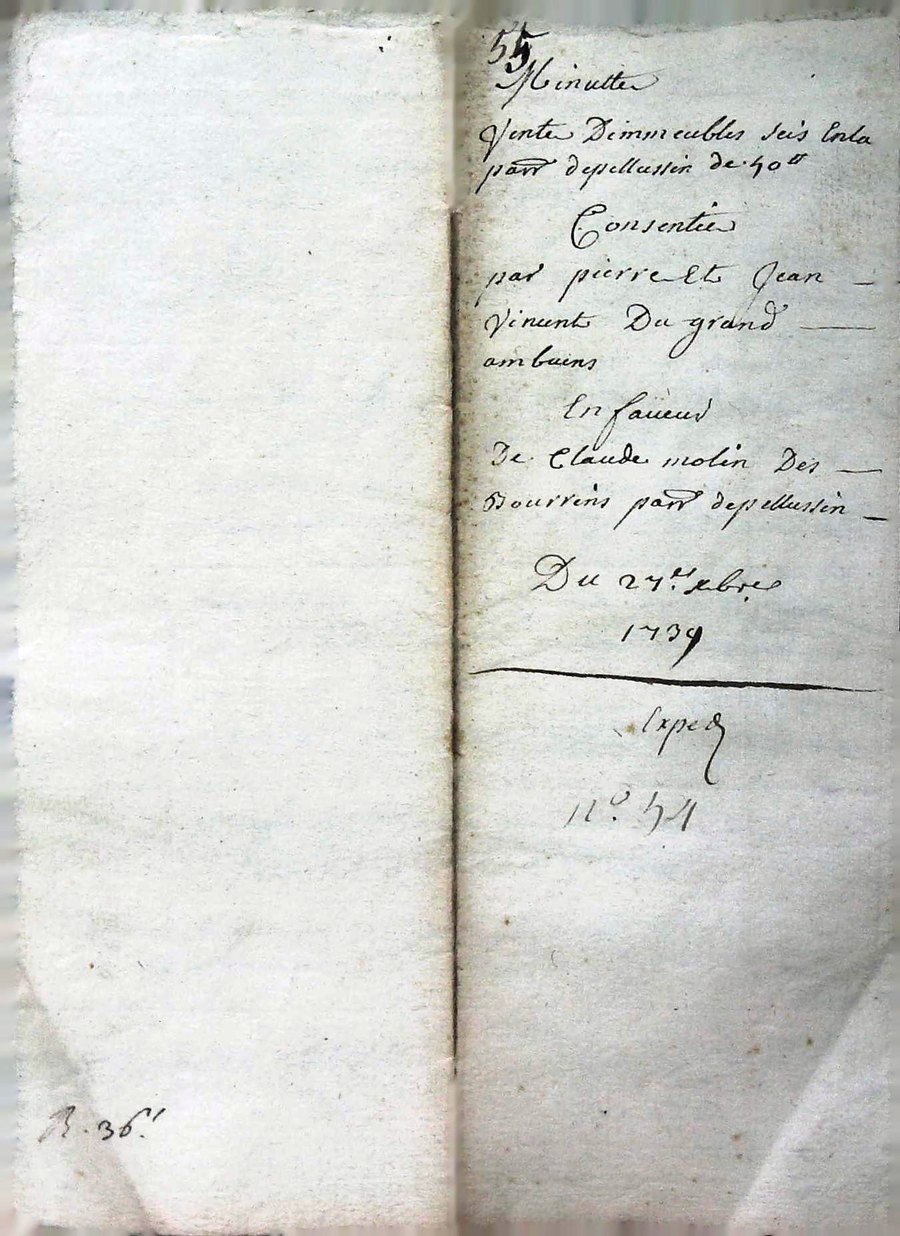 55
Minutte
Vente Dimmeubles seis Enla
parr depellussin de 50 tt
Consentie
par pierre Et Jean
Vincent Du grand
ambuens
En faueur
De Claude molin Des
Bourrins parr depellussin
Du 27.e
1739
Exped
n.o 54
R. 36.s